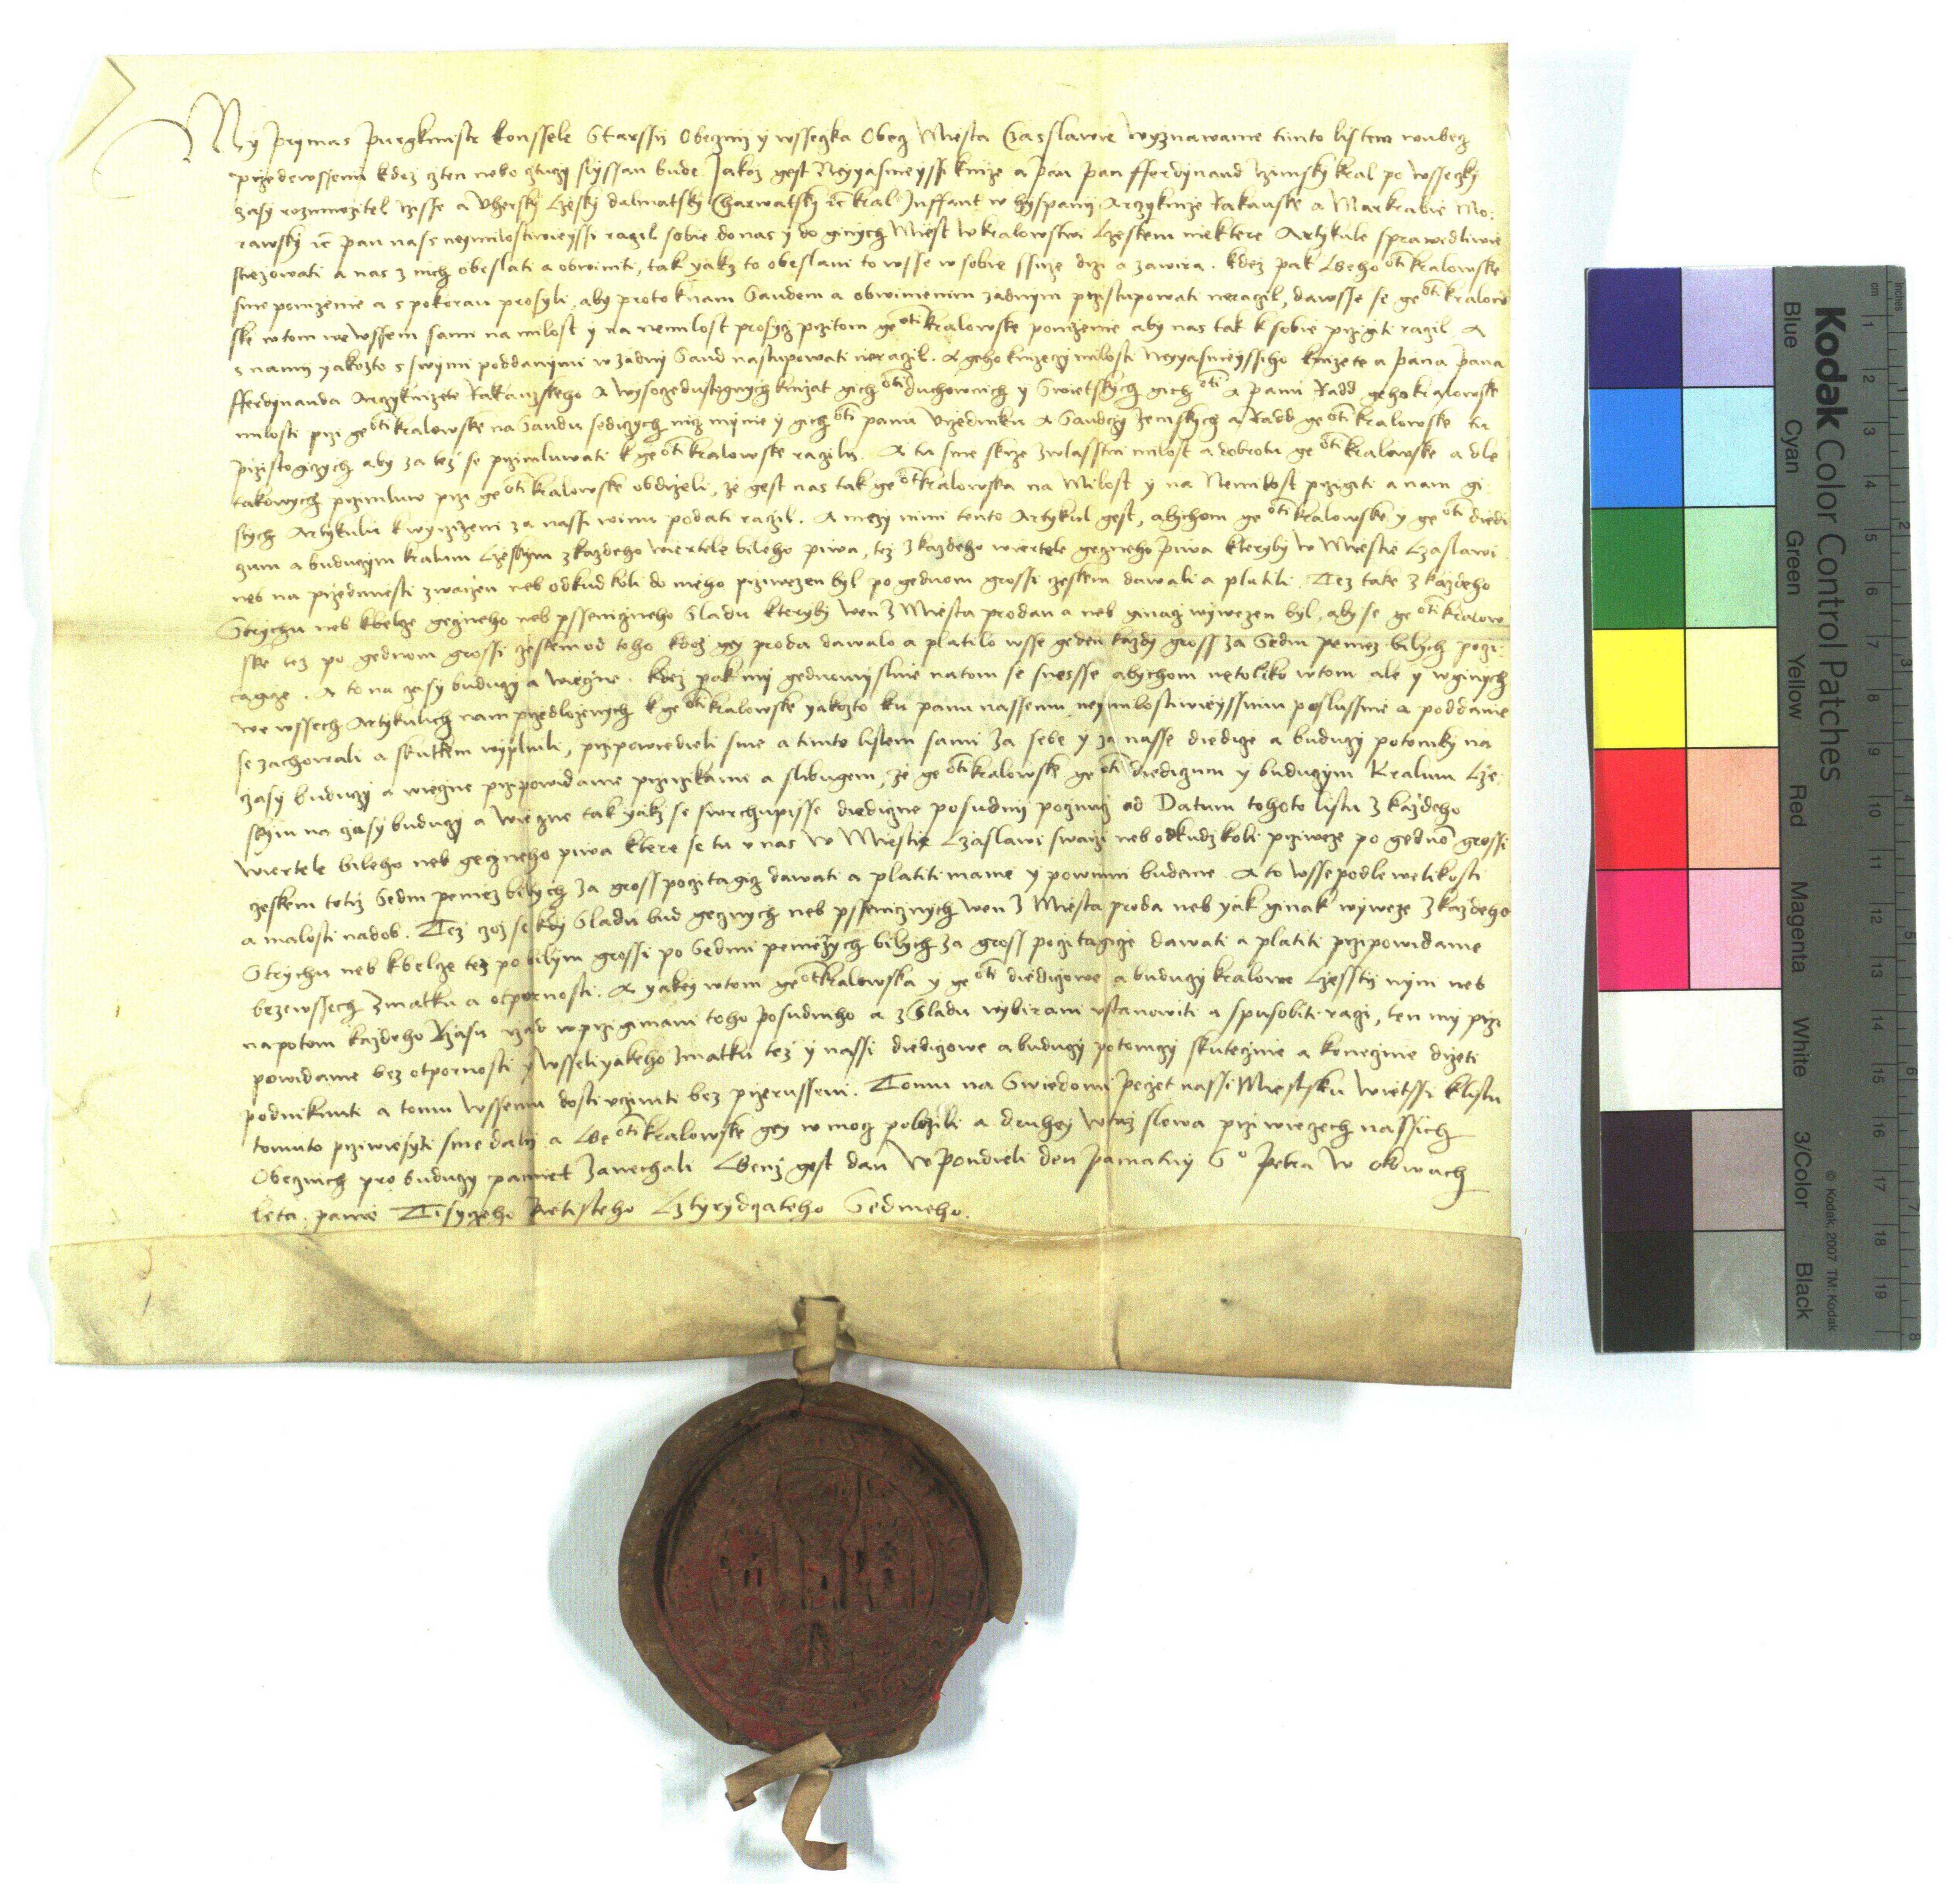 My Prymas Purgkmistr konssele Starssy Obeczny y wsseczka Obecz Miesta Czaslawie wyznawame tiimto listem wubecz
przedewssemi kdez czten nebo cztuczy slyssan bude. Jakoz gest Neyyasneyssi knize a Pan Pan fferdynand Rzimsky kral po wsseczky
czasy rozmnozitel rzisse a Uhersky Czesky dalmatsky Charwatsky kral Inffant w Hyspany Arczyknize Rakauske a Markrabie Mo-
rawsky pan nass neymilostiwieyssi raczil sobie donas y do ginych Miest w kralowstwi Czeskem niektere Artykule sprawedliwie
stiezowati a nas z nich obeslati a obwiniti, tak yakz to obeslani to wsse w sobie ssirze drzi a zawira. kdez pak Geho oti kralowske
sme ponizenie a s pokorau prosyli, aby proto k nam Saudem a obwinienim zadnym przistupowati neraczil, dawsse se ge oti kralow
ske w tom we wssem sami na milost y na nemilost prosycz przitom ge oti kralowske ponizenie aby nas tak k sobie przigiti raczil A
s namy yakozto s swymi poddanymi w zadny Saud nastupowati neraczil. A geho knizeczy milosti Neyyasnieyssiho knizete a pana pana
fferdynanda Arczyknizete Rakauskeho A wysoczedustognych knizat gich oti duchownich y Swietskych gich oti A panu Radd geho kralowske
milosti przi ge oti kralowske na Saudu sediczych niz mynie y gich oti panu Urzedniku A Saudczy zemskych a Radd ge oti kralowske tu
przistogiczych aby za tez se przimluwati k ge oti kralowske raczily. A tu sme skrze zwlasstni milost a dobrotu ge oti kralowske a dle
takowych przimluw przi ge oti kralowske obdrzeli, ze gest nas tak ge ot kralowska na Milost y na Nemilost przigiti a nam gi-
stych Artykulu k wyrzizeni za nassi winu podati raczil. A mezy nimi tento Artykul gest, abychom ge oti kralowske y ge oti diedi
czum a buduczym kralum Czeskym z kazdeho wiertele bileho piwa, tez z kazdeho wiertele geczneho piwa kteryby w Miestie Czaslawi
neb na przedmiesti zwarzen neb odkud koli do nieho przivezen byl po gednom grossi czeskem dawali a platili. Tez take z kazdeho
Strychu neb kbelcze geczneho neb pssenicneho Sladu kteryby wen z Miesta prodan a neb ginacz wywezen byl, aby se ge oti kralow
ske tez po gednom grossi czeskem od toho kdoz gey proda dawalo a platilo wsse geden kazdy gross za Sedm peniez bilych poczi-
tagicze. A to na czasy buduczy a wieczne. kdez pak my gednomyslnie natom se snessse abychom netoliko w tom ale y w ginych
we wssech Artykulich nam przedlozenych k ge oti kralowske yakozto ku panu nassemu neymilostiwieyssimu poslussnie a poddanie
se zachowali a skutkem wyplnili, przipowiedieli sme a timto listem sami za sebe y za nasse diedicze a buduczy potomky na
czasy buduczy a wieczne przipowidame przirzikame a slibugem, ze ge oti kralowske ge oti diediczum y buduczym Kralum Cze-
skym na czasy buduczy a wieczne tak yakz se swrchupisse diediczne posudny poczna od Datum tohoto listu z kazdeho
wiertele bileho neb geczneho piwa ktere se tu u nas w Miestie Czaslawi swarzi neb odkudz koli przivcze po gednom grossi
czeskem totiz Sedm peniez bilych za gross pocztagicz dawati a platiti mame y powinni budeme. A to wsse podle welikosti
a malosti nadob. Tez czoz se kdy Sladu bud gecznych neb psseniczných wen z Miesta proda neb yak ginak wyweze z kazdeho
Strychu neb kbelcze tez po bilym grossi po Sedmi peniezych bilych za gross pocztagicze dawati a platiti przipowidame
bezewssech zmatku a otpornosti. A yakey w tom ge ot kralowska y ge oti diediczowe a buduczy kralowe Czessty nym neb
napotom kazdeho czasu rzad w przigimani toho posudniho a z Sladu wybirani ustanowiti a spusobiti raczi, ten my przi
powidame bez otpornosti y wsseliyakeho zmatku tez y nassi diediczowe a buduczy potomczy skutecznie a koneczne drzeti
podniknuti a tomu wssemu dosti ucziniti bez przerusseni. Tomu na Swiedomi peczet nassi Miestsku wietssi k listu
tomuto przivesyti sme daly a Ge oti kralowske gey w mocz polozili a druhey w taz slowa przi wieczech nassich
Obecznich pro buduczy pamiet zanechali Genz gest dan w Pondieli den pamatny S o Petra w okowach
leta panie Tisyczeho Pietisteho Cztyrydczateho Sedmeho.
Kodak Color Control Patches
Blue Cyan Green Yellow Red Magenta White 3/Color Black
© Kodak, 2007 TM: Kodak
inches 1 2 3 4 5 6 7 8
cm 1 2 3 4 5 6 7 8 9 10 11 12 13 14 15 16 17 18 19